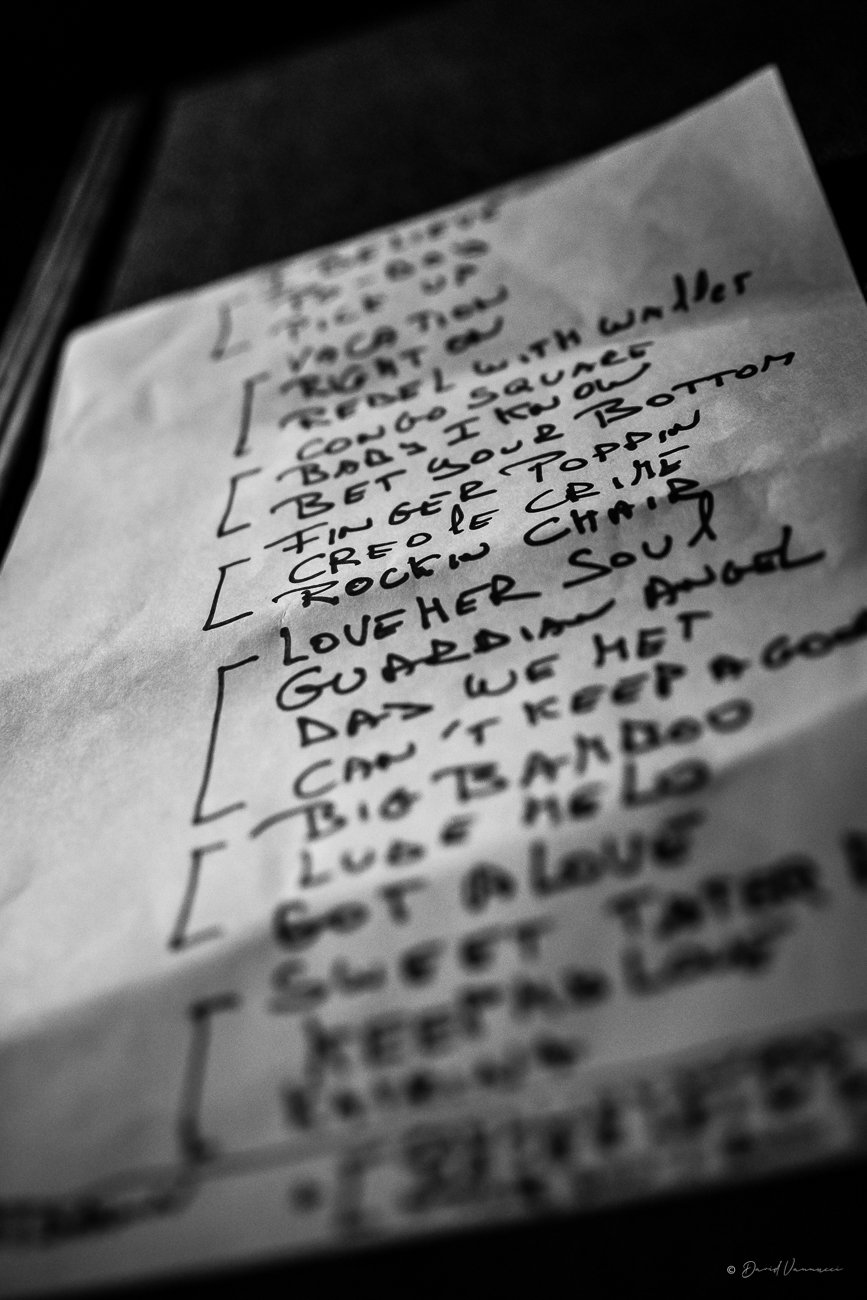 I BELIEVE
PICK UP
VACATION
RIGHT ON
REBEL WITH WALLET
CONGO SQUARE
BABY I KNOW
BET YOUR BOTTOM
FINGER POPPIN
CREOLE CRIME
ROCKIN CHAIR
LOVE HER SOUL
GUARDIAN ANGEL
DAD WE MET
CAN'T KEEP A GOOD
BIG BAMBOO
LUBE ME
GOT A LOVE
SWEET TATER
KEEP LOVE
© David Vannucci